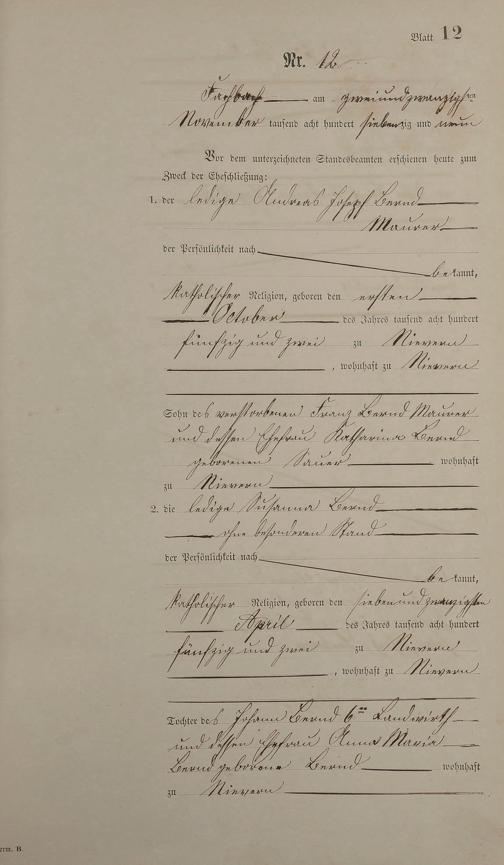 Blatt 12
Nr. 12
Fachbach am zweiundzwanzigsten
November tausend acht hundert siebenzig und neun
Vor dem unterzeichneten Standesbeamten erschienen heute zum
Zweck der Eheschließung:
1. der ledige Andreas Joseph Bernd
Maurer
der Persönlichkeit nach
bekannt,
katholischer Religion, geboren den ersten
October des Jahres tausend acht hundert
fünfzig und zwei zu Nievern
, wohnhaft zu Nievern
Sohn des verstorbenen Franz Bernd Maurer
und dessen Ehefrau Katharina Bernd
geborenen Sauer wohnhaft
zu Nievern
2. die ledige Susanna Bernd
ohne besonderen Stand
der Persönlichkeit nach
bekannt,
katholischer Religion, geboren den siebenundzwanzigsten
April des Jahres tausend acht hundert
fünfzig und zwei zu Nievern
, wohnhaft zu Nievern
Tochter des Johann Bernd 6ter Landwirth
und dessen Ehefrau Anna Maria
Bernd geborene Bernd wohnhaft
zu Nievern
B.